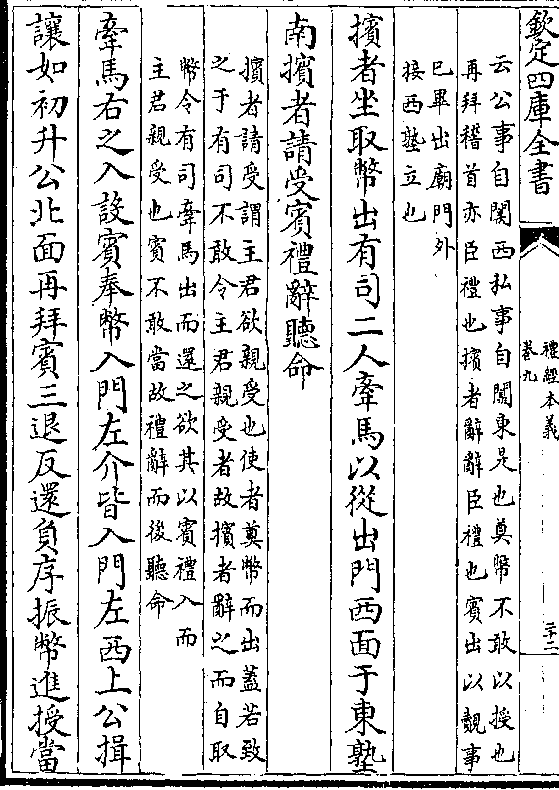 欽定四庫全書
禮經本義
卷九
三十二
云公事自闑西私事自闑東是也奠幣不敢以授也
再拜稽首亦臣禮也擯者辭辭臣禮也賓出以覿事
巳畢出廟門外
接西塾立也
擯者坐取幣出有司二人牽馬以從出門西面于東塾
南擯者請受賓禮辭聽命
擯者請受謂主君欲親受也使者奠幣而出蓋若致
之于有司不敢令主君親受者故擯者辭之而自取
幣令有司牽馬出而還之欲其以賓禮入而
主君親受也賓不敢當故禮辭而後聽命
牽馬右之入設賓奉幣入門左介皆入門左西上公揖
讓如初升公北面再拜賓三退反還負序振幣進授當